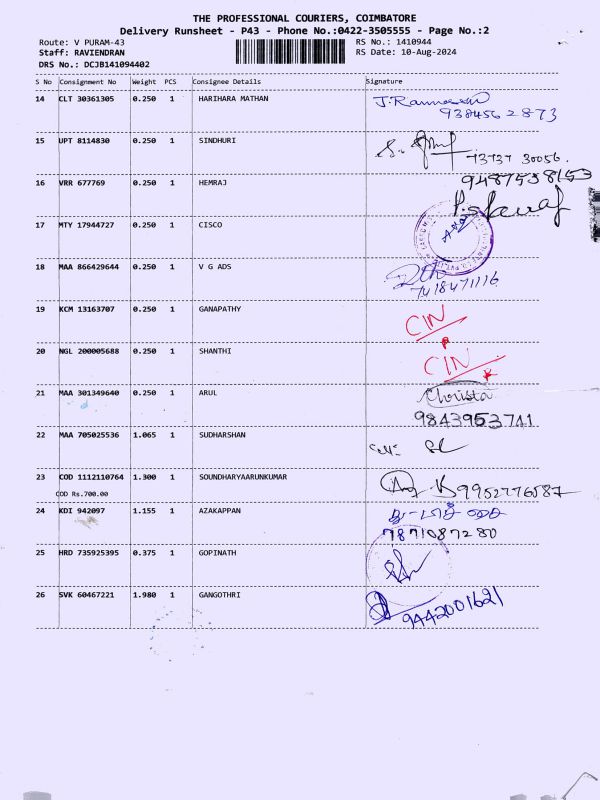 THE PROFESSIONAL COURIERS, COIMBATORE
Delivery Runsheet - P43 - Phone No.:0422-3505555 - Page No.:2
Route: V PURAM-43 RS No.: 1410944
Staff: RAVIENDRAN RS Date: 10-Aug-2024
DRS No.: DCJB141094402
S No Consignment No Weight PCS Consignee Details Signature
14 CLT 30361305 0.250 1 HARIHARA MATHAN
9384562873
15 UPT 8114830 0.250 1 SINDHURI
73737 30056.
16 VRR 677769 0.250 1 HEMRAJ 9487538153
17 MTY 17944727 0.250 1 CISCO
18 MAA 866429644 0.250 1 V G ADS
7418471116
19 KCM 13163707 0.250 1 GANAPATHY CIN
20 NGL 200005688 0.250 1 SHANTHI CIN
21 MAA 301349640 0.250 1 ARUL Christa
9843953741
22 MAA 705025536 1.065 1 SUDHARSHAN
23 COD 1112110764 1.300 1 SOUNDHARYAARUNKUMAR 9952776587
COD Rs.700.00
24 KDI 942097 1.155 1 AZAKAPPAN
7871087280
25 HRD 735925395 0.375 1 GOPINATH
26 SVK 60467221 1.980 1 GANGOTHRI 9442001621